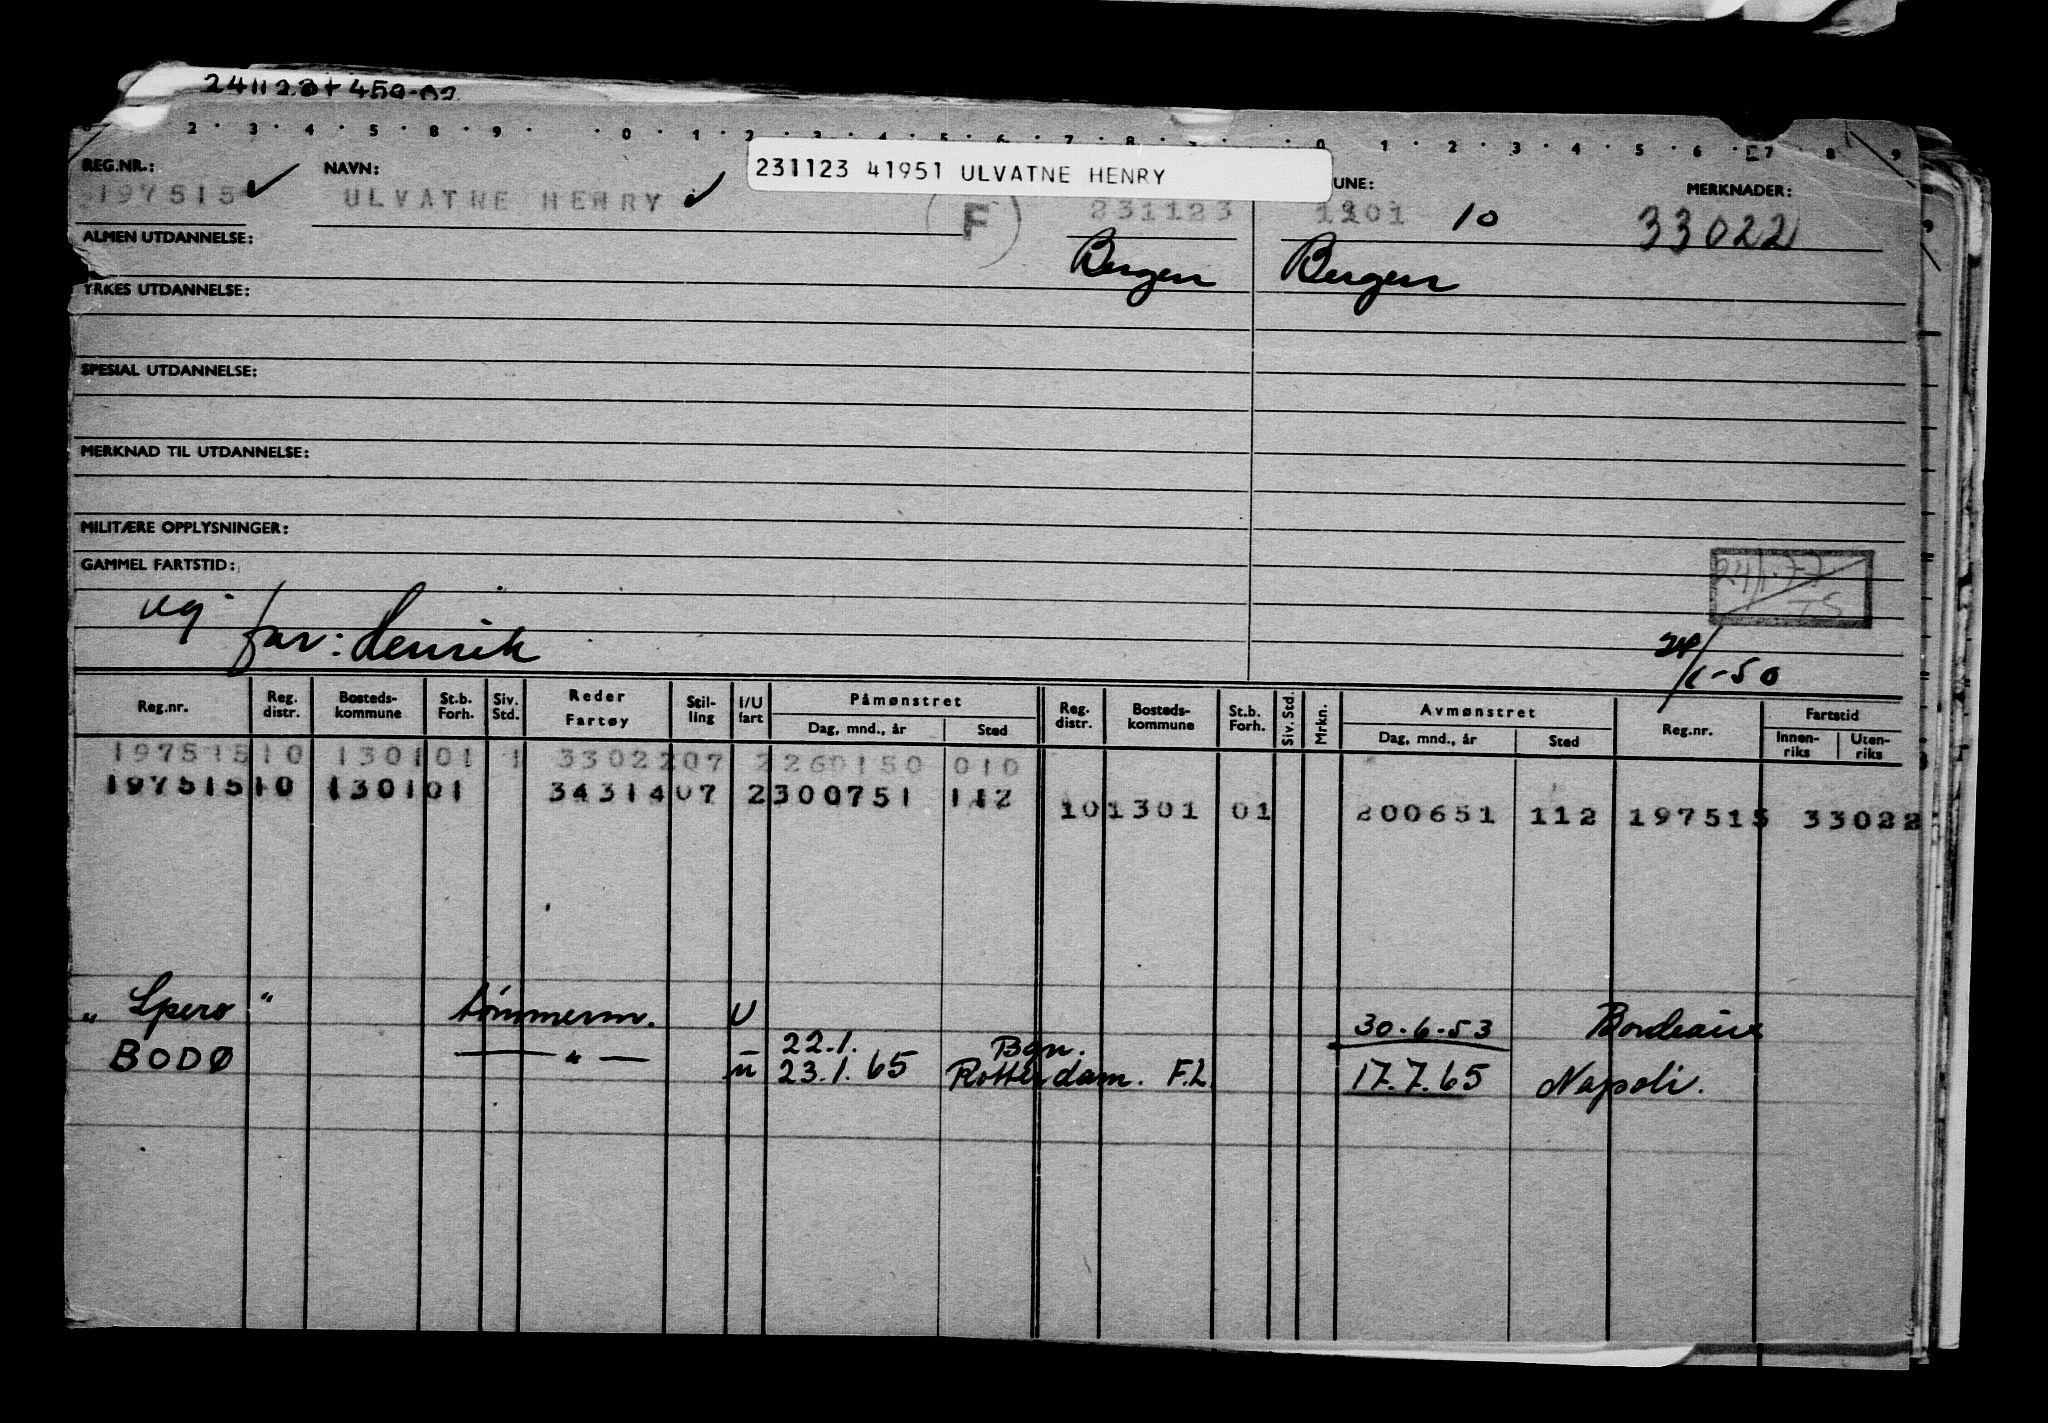 2 3 4 5 8 9 0 1 2 3 4 5 6 7 8 0 1 2 3 4 5 6 7 8 9
REG.NR.: NAVN: 231123 41951 ULVATNE HENRY UNE: MERKNADER:
197515 ✓ ULVATNE HENRY ✓ (F) 231123 1301 10 33022
ALMEN UTDANNELSE: Bergen Bergen
YRKES UTDANNELSE:
SPESIAL UTDANNELSE:
MERKNAD TIL UTDANNELSE:
MILITÆRE OPPLYSNINGER:
GAMMEL FARTSTID:
far: Henrik
24/1-50
Reg.nr. Reg. distr. Bosteds-kommune St.b. Forh. Siv. Std. Reder Fartøy Stil-ling I/U fart Påmønstret Dag, mnd., år Sted Reg. distr. Bosteds-kommune St.b. Forh. Siv. Std. Mrkn. Avmønstret Dag, mnd., år Sted Reg.nr. Fartstid Innen-riks Uten-riks
197515 10 1301 01 1 33022 07 2 260150 010
197515 10 1301 01 34314 07 2 300751 112
10 1301 01 200651 112 197515 33022
"Spero" tømmerm. U 30.6.53 Bordeaux
22.1. Bgn.
BODØ — " — u 23.1.65 Rotterdam. F.L 17.7.65 Napoli.